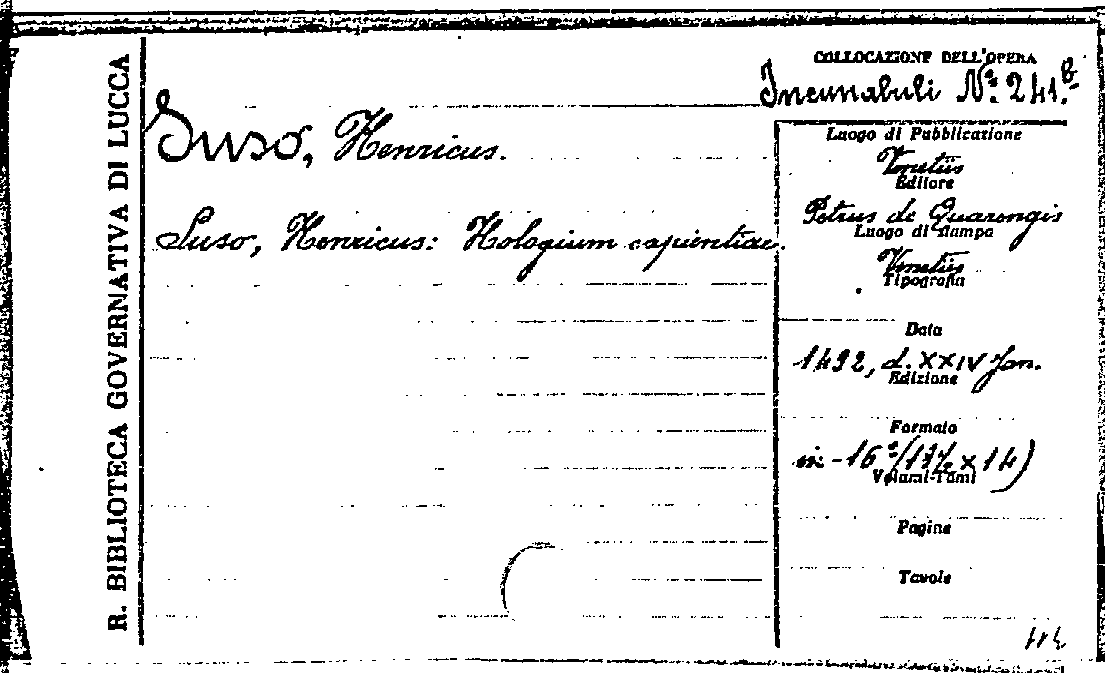 R. BIBLIOTECA GOVERNATIVA DI LUCCA
COLLOCAZIONE DELL'OPERA
Incunabuli Nº. 241.b
Suso, Henricus.
Suso, Henricus: Hologium sapientiae.
Luogo di Pubblicazione
Venetiis
Editore
Petrus de Quarengis
Luogo di stampa
Venetiis
Tipografia
Data
1492, d. XXIV Jan.
Edizione
Formato
in-16º (19½ x 14)
Volumi-Tomi
Pagine
Tavole